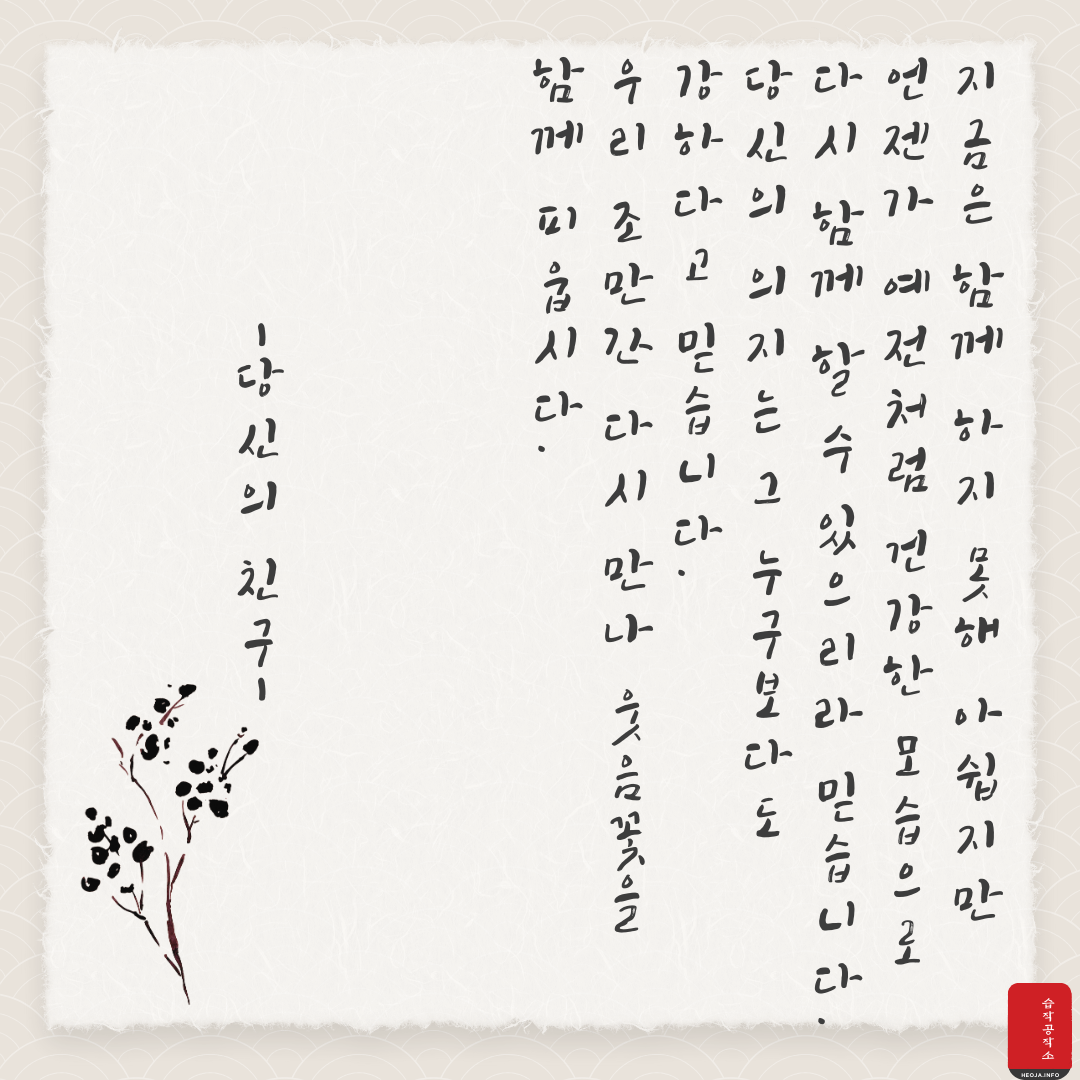 지금은 함께 하지 못해 아쉽지만
언젠가 예전처럼 건강한 모습으로
다시 함께 할 수 있으리라 믿습니다.
당신의 의지는 그 누구보다도
강하다고 믿습니다.
우리 조만간 다시 만나 웃음꽃을
함께 피웁시다.
-당신의 친구-
습작공작소
HEOJA.INFO